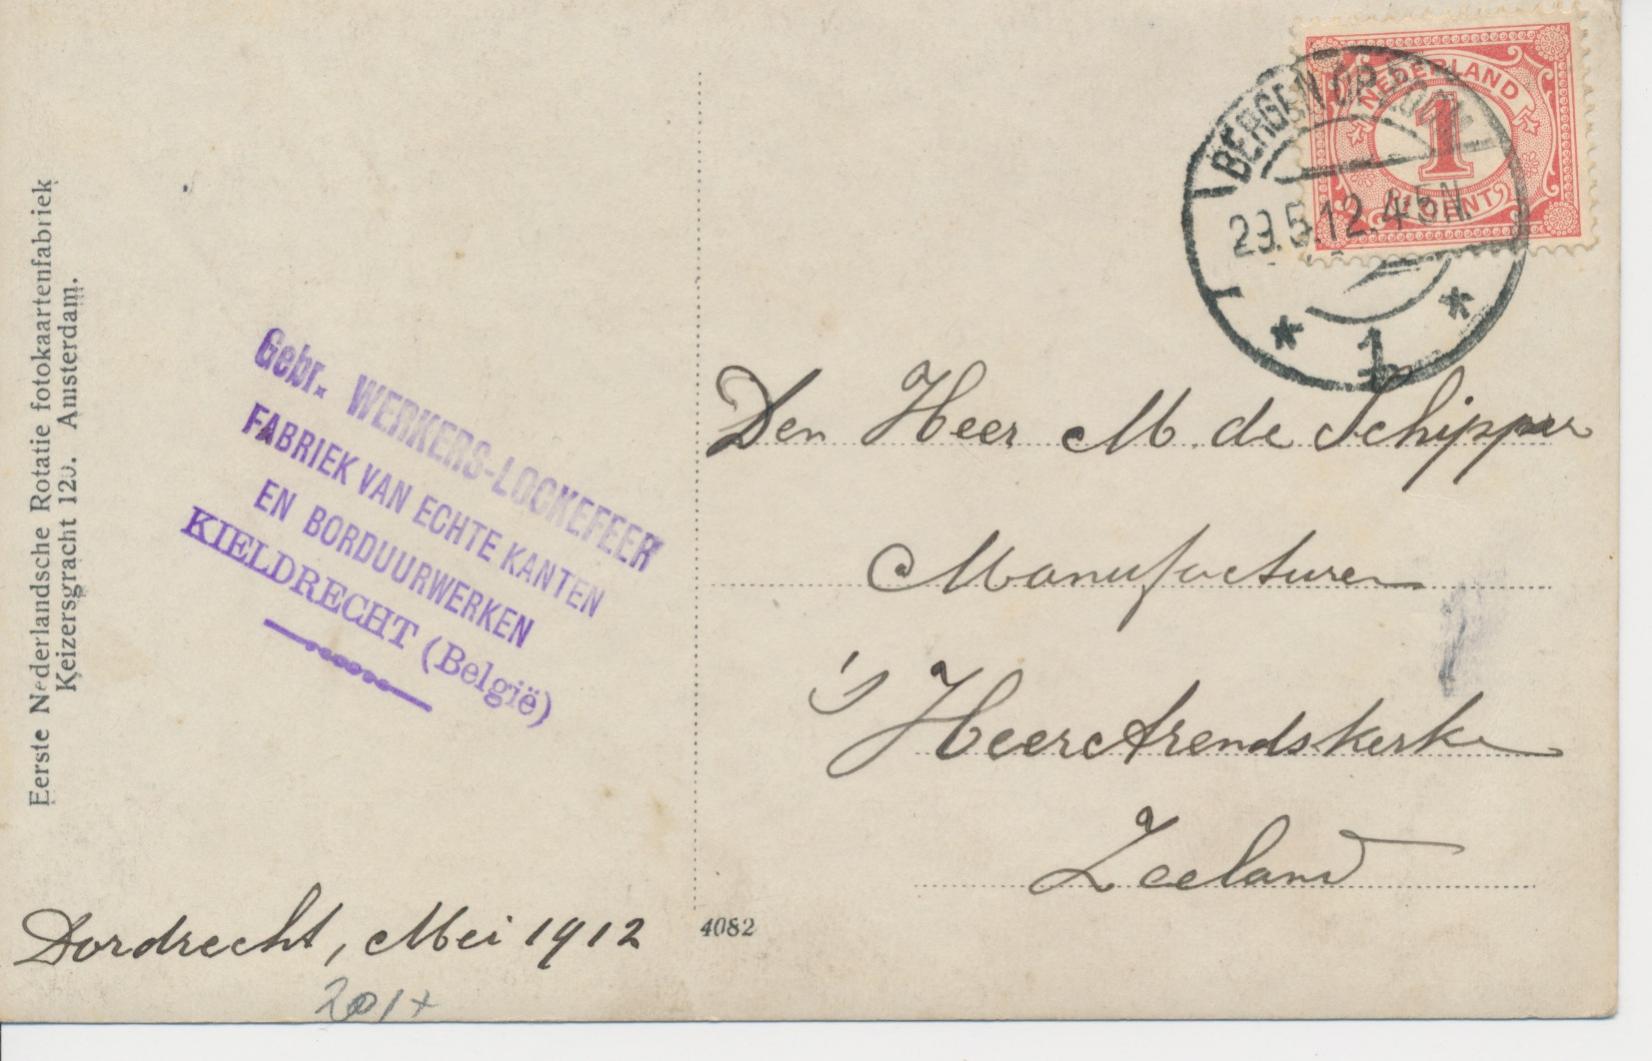 Eerste Nederlandsche Rotatie fotokaartenfabriek
Keizersgracht Amsterdam.
Gebr. WERKERS-LOCKEFEER
FABRIEK VAN ECHTE KANTEN
EN BORDUURWERKEN
KIELDRECHT (België)
Dordrecht, Mei 1912
4082
NEDERLAND
1
CENT
BERGEN OP ZOOM
29.5.12.4-5N.
* 1 *
Den Heer M. de Schipper
Manufacturen
's HeerArendskerke
Zeeland